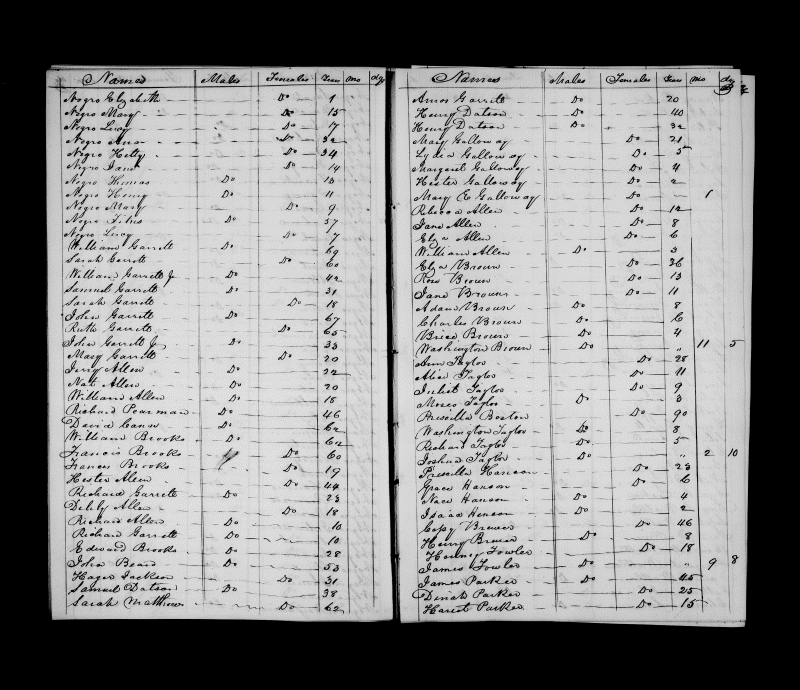 Names Males Females Years Mo dys
Negro Elizabeth Do 1
Negro Mary Do 15
Negro Lucy Do 7
Negro Ann Do 32
Negro Hetty Do 34
Negro Jane Do 14
Negro Thomas Do 13
Negro Henry Do 11
Negro Mary Do 9
Negro Titus Do 57
Negro Lucy Do 7
William Garrett Do 69
Sarah Garrett Do 60
William Garrett Jr Do 42
Samuel Garrett Do 31
Sarah Garrett Do 18
John Garrett Do 67
Ruth Garrett Do 65
John Garrett Jr Do 33
Mary Garrett Do 20
Jerry Allen Do 22
Nat Allen Do 20
William Allen Do 18
Richard Pearman Do 46
David Do 62
William Brooks Do 62
Francis Brooks Do 60
Frances Brooks Do 19
Hester Allen Do 44
Richard Garrett Do 23
Debby Allen Do 18
Richard Allen Do 10
Richard Garrett Do 10
Edward Brooks Do 28
John Beard Do 53
Hager Jackson Do 31
Samuel Datson Do 38
Sarah Matthews Do 62
Names Males Females Years Mo dys
Amos Garrett Do 20
Henry Datson Do 40
Henry Datson Do 32
Mary Galloway Do 21
Lydia Galloway Do 5
Margaret Galloway Do 4
Hester Galloway Do 2
Mary E Galloway Do 1
Rebecca Allen Do 12
Jane Allen Do 8
Eliza Allen Do 6
William Allen Do 3
Eliza Brown Do 36
Rose Brown Do 13
Jane Brown Do 11
Adam Brown Do 8
Charles Brown Do 6
Brice Brown Do 4
Washington Brown Do " 11 5
Ann Taylor Do 28
Alice Taylor Do 11
Juliet Taylor Do 9
Moses Taylor Do 3
Priscilla Boston Do 90
Washington Taylor Do 8
Richard Taylor Do 5
Joshua Taylor Do " 2 10
Priscilla Hanson Do 23
Grace Hanson Do 6
Nace Hanson Do 4
Isaac Henson Do 2
Brown Do 46
Henry Brown Do 8
Henny Fowler Do 18
James Fowler Do " 9 8
James Parker Do 45
Dinah Parker Do 25
Harriet Parker Do 15